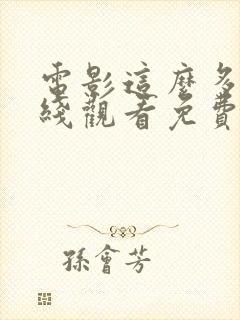 電影這麼多
綫觀看免費
孫會芳